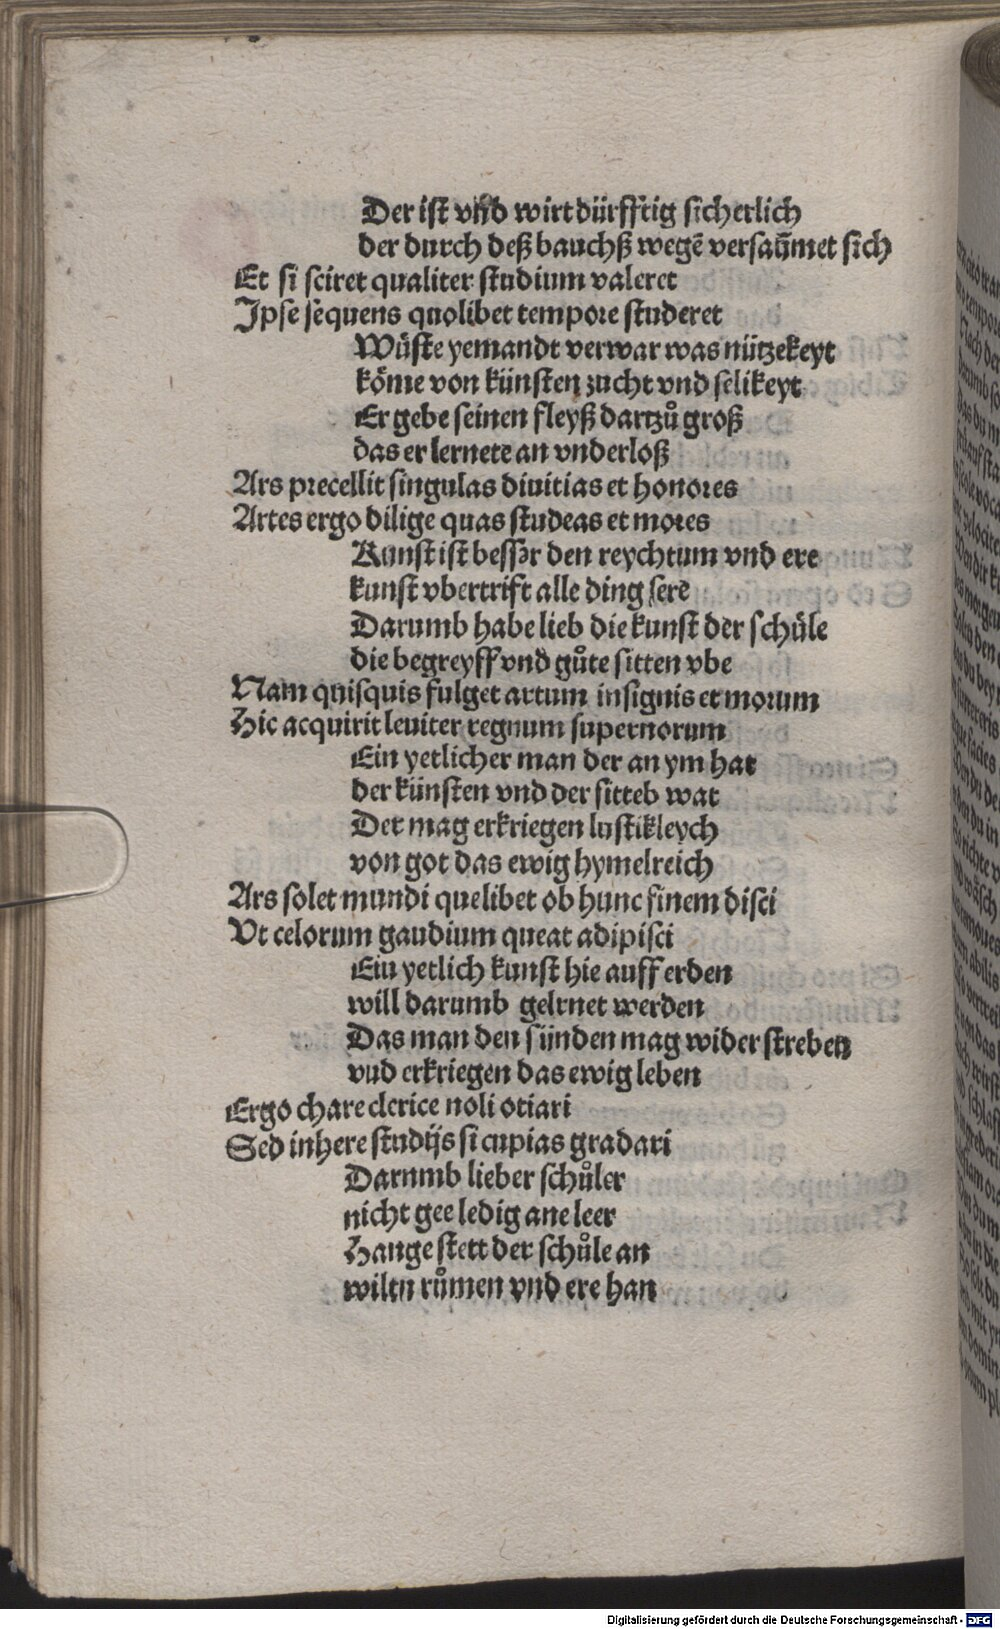 Der ist vnd wirt dürfftig sicherlich
der durch deß bauchß wegē versaūmet sich
Et si sciret qualiter studium valeret
Ipse sequens quolibet tempore studeret
Wüste yemandt verwar was nützekeyt
köme von künsten zucht vnd selikeyt
Er gebe seinen fleyß dartzů groß
das er lernete an vnderloß
Ars precellit singulas diuitias et honores
Artes ergo dilige quas studeas et mores
Kunst ist besser den reychtum vnd ere
kunst vbertrift alle ding sere
Darumb habe lieb die kunst der schüle
die begreyff vnd gůte sitten vbe
Nam quisquis fulget artum insignis et morum
Hic acquirit leuiter regnum supernorum
Ein yetlicher man der an ym hat
der künsten vnd der sitteb wat
Der mag erkriegen lustikleych
von got das ewig hymelreich
Ars solet mundi quelibet ob hunc finem disci
Vt celorum gaudium queat adipisci
Eiu yetlich kunst hie auff erden
will darumb gelrnet werden
Das man den sünden mag wider streben
vud erkriegen das ewig leben
Ergo chare clerice noli otiari
Sed inhere studijs si cupias gradari
Darumb lieber schůler
nicht gee ledig ane leer
Hange stett der schůle an
wiltu růmen vnd ere han
Digitalisierung gefördert durch die Deutsche Forschungsgemeinschaft - DFG